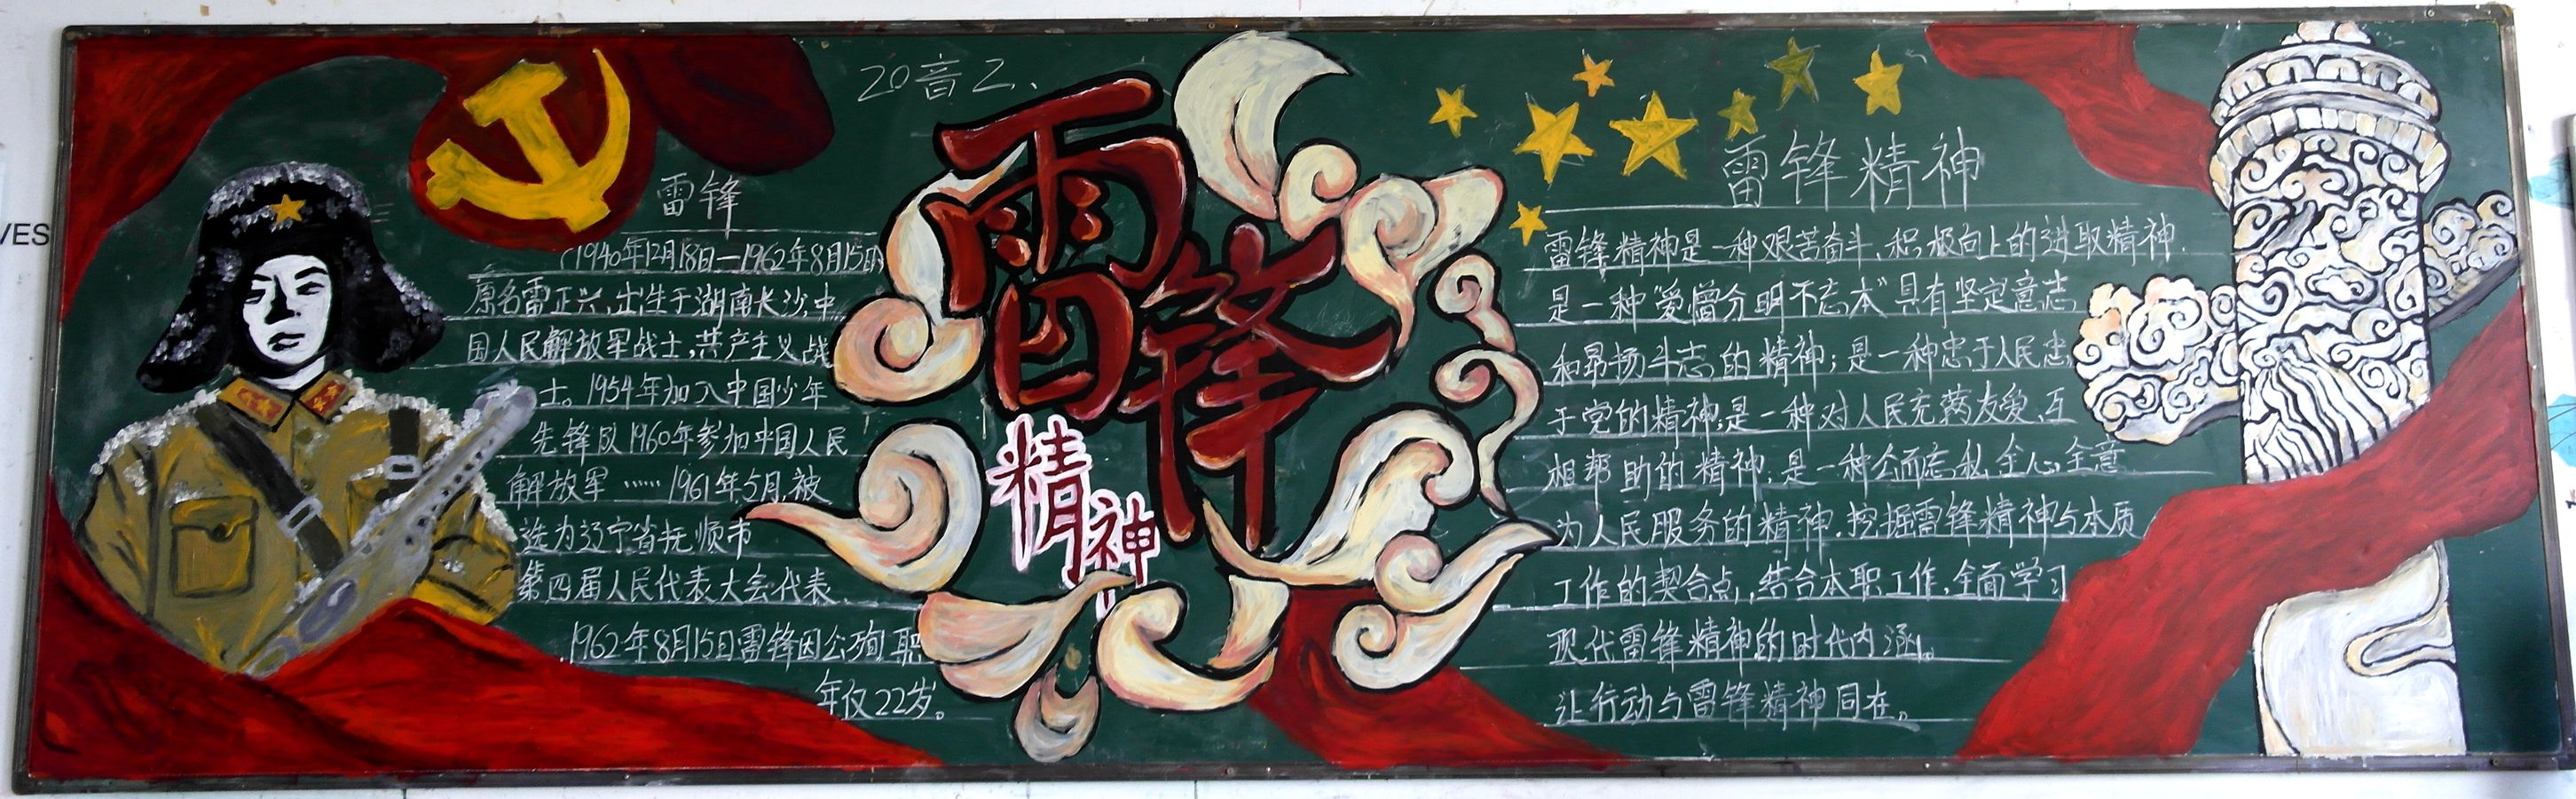 VES
20音乙、
雷锋
(1940年12月18日—1962年8月15日)
原名雷正兴,出生于湖南长沙,中
国人民解放军战士,共产主义战
士。1954年加入中国少年
先锋队1960年参加中国人民
解放军……1961年5月,被
选为辽宁省抚顺市
第四届人民代表大会代表、
1962年8月15日雷锋因公殉职
年仅22岁。
雷锋
精神
雷锋精神
雷锋精神是一种艰苦奋斗、积极向上的进取精神.
是一种"爱憎分明不忘本"具有坚定意志
和昂扬斗志的精神;是一种忠于人民忠
于党的精神;是一种对人民充满友爱、互
相帮助的精神;是一种公而忘私全心全意
为人民服务的精神.挖掘雷锋精神与本质
工作的契合点,结合本职工作,全面学习
现代雷锋精神的时代内涵。
让行动与雷锋精神同在。